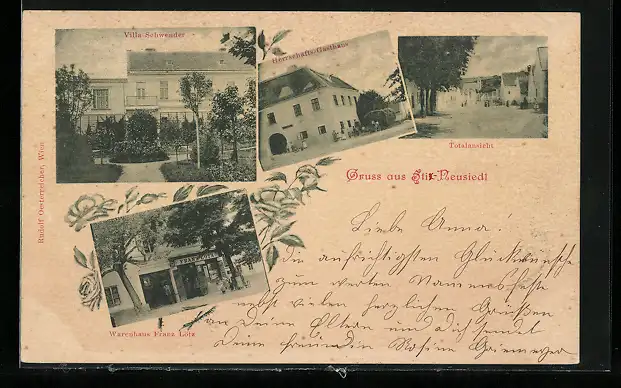 Villa Schwender
Herrschafts-Gasthaus
Totalansicht
Gruss aus Stix-Neusiedl
Rudolf Oesterreicher, Wien
Warenhaus Franz Lötz
Liebe Anna!
die aufrichtigsten Glückwünsche
zum werten Namensfeste
nebst vielen herzlichen Grüßen
an Deine Eltern und Dich sendet
Deine Freundin Rosine